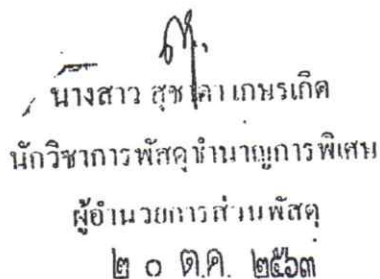 นางสาว สุชาดา เกษรเกิด
นักวิชาการพัสดุชำนาญการพิเศษ
ผู้อำนวยการส่วนพัสดุ
๒ ๐ ต.ค. ๒๕๖๓